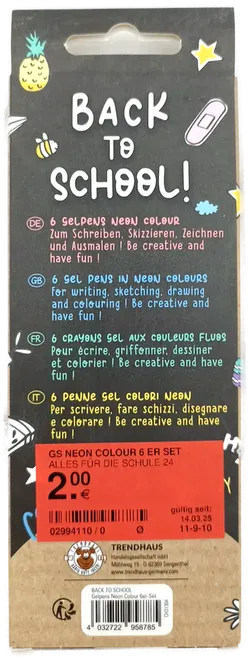 BACK
TO
SCHOOL!
DE 6 GELPENS NEON COLOUR
Zum Schreiben, Skizzieren, Zeichnen
und Ausmalen ! Be creative and
have fun !
GB 6 GEL PENS IN NEON COLOURS
for writing, sketching, drawing
and colouring ! Be creative and
have fun !
FR 6 CRAYONS GEL AUX COULEURS FLUOS
Pour écrire, griffonner, dessiner
et colorier ! Be creative and
have fun !
IT 6 PENNE GEL COLORI NEON
Per scrivere, fare schizzi, disegnare
e colorare ! Be creative and have
fun !
GS NEON COLOUR 6 ER SET
ALLES FÜR DIE SCHULE 24
2.00
€
gültig seit:
14.03.25
02994110 / 0 Ø 11-9-10
TRENDHAUS
Handelsgesellschaft mbH
Mühlweg 19 - D 82390
trendhaus-germany.com
BACK TO SCHOOL
Gelpens Neon Colour 6er-Set
4 032722 958785